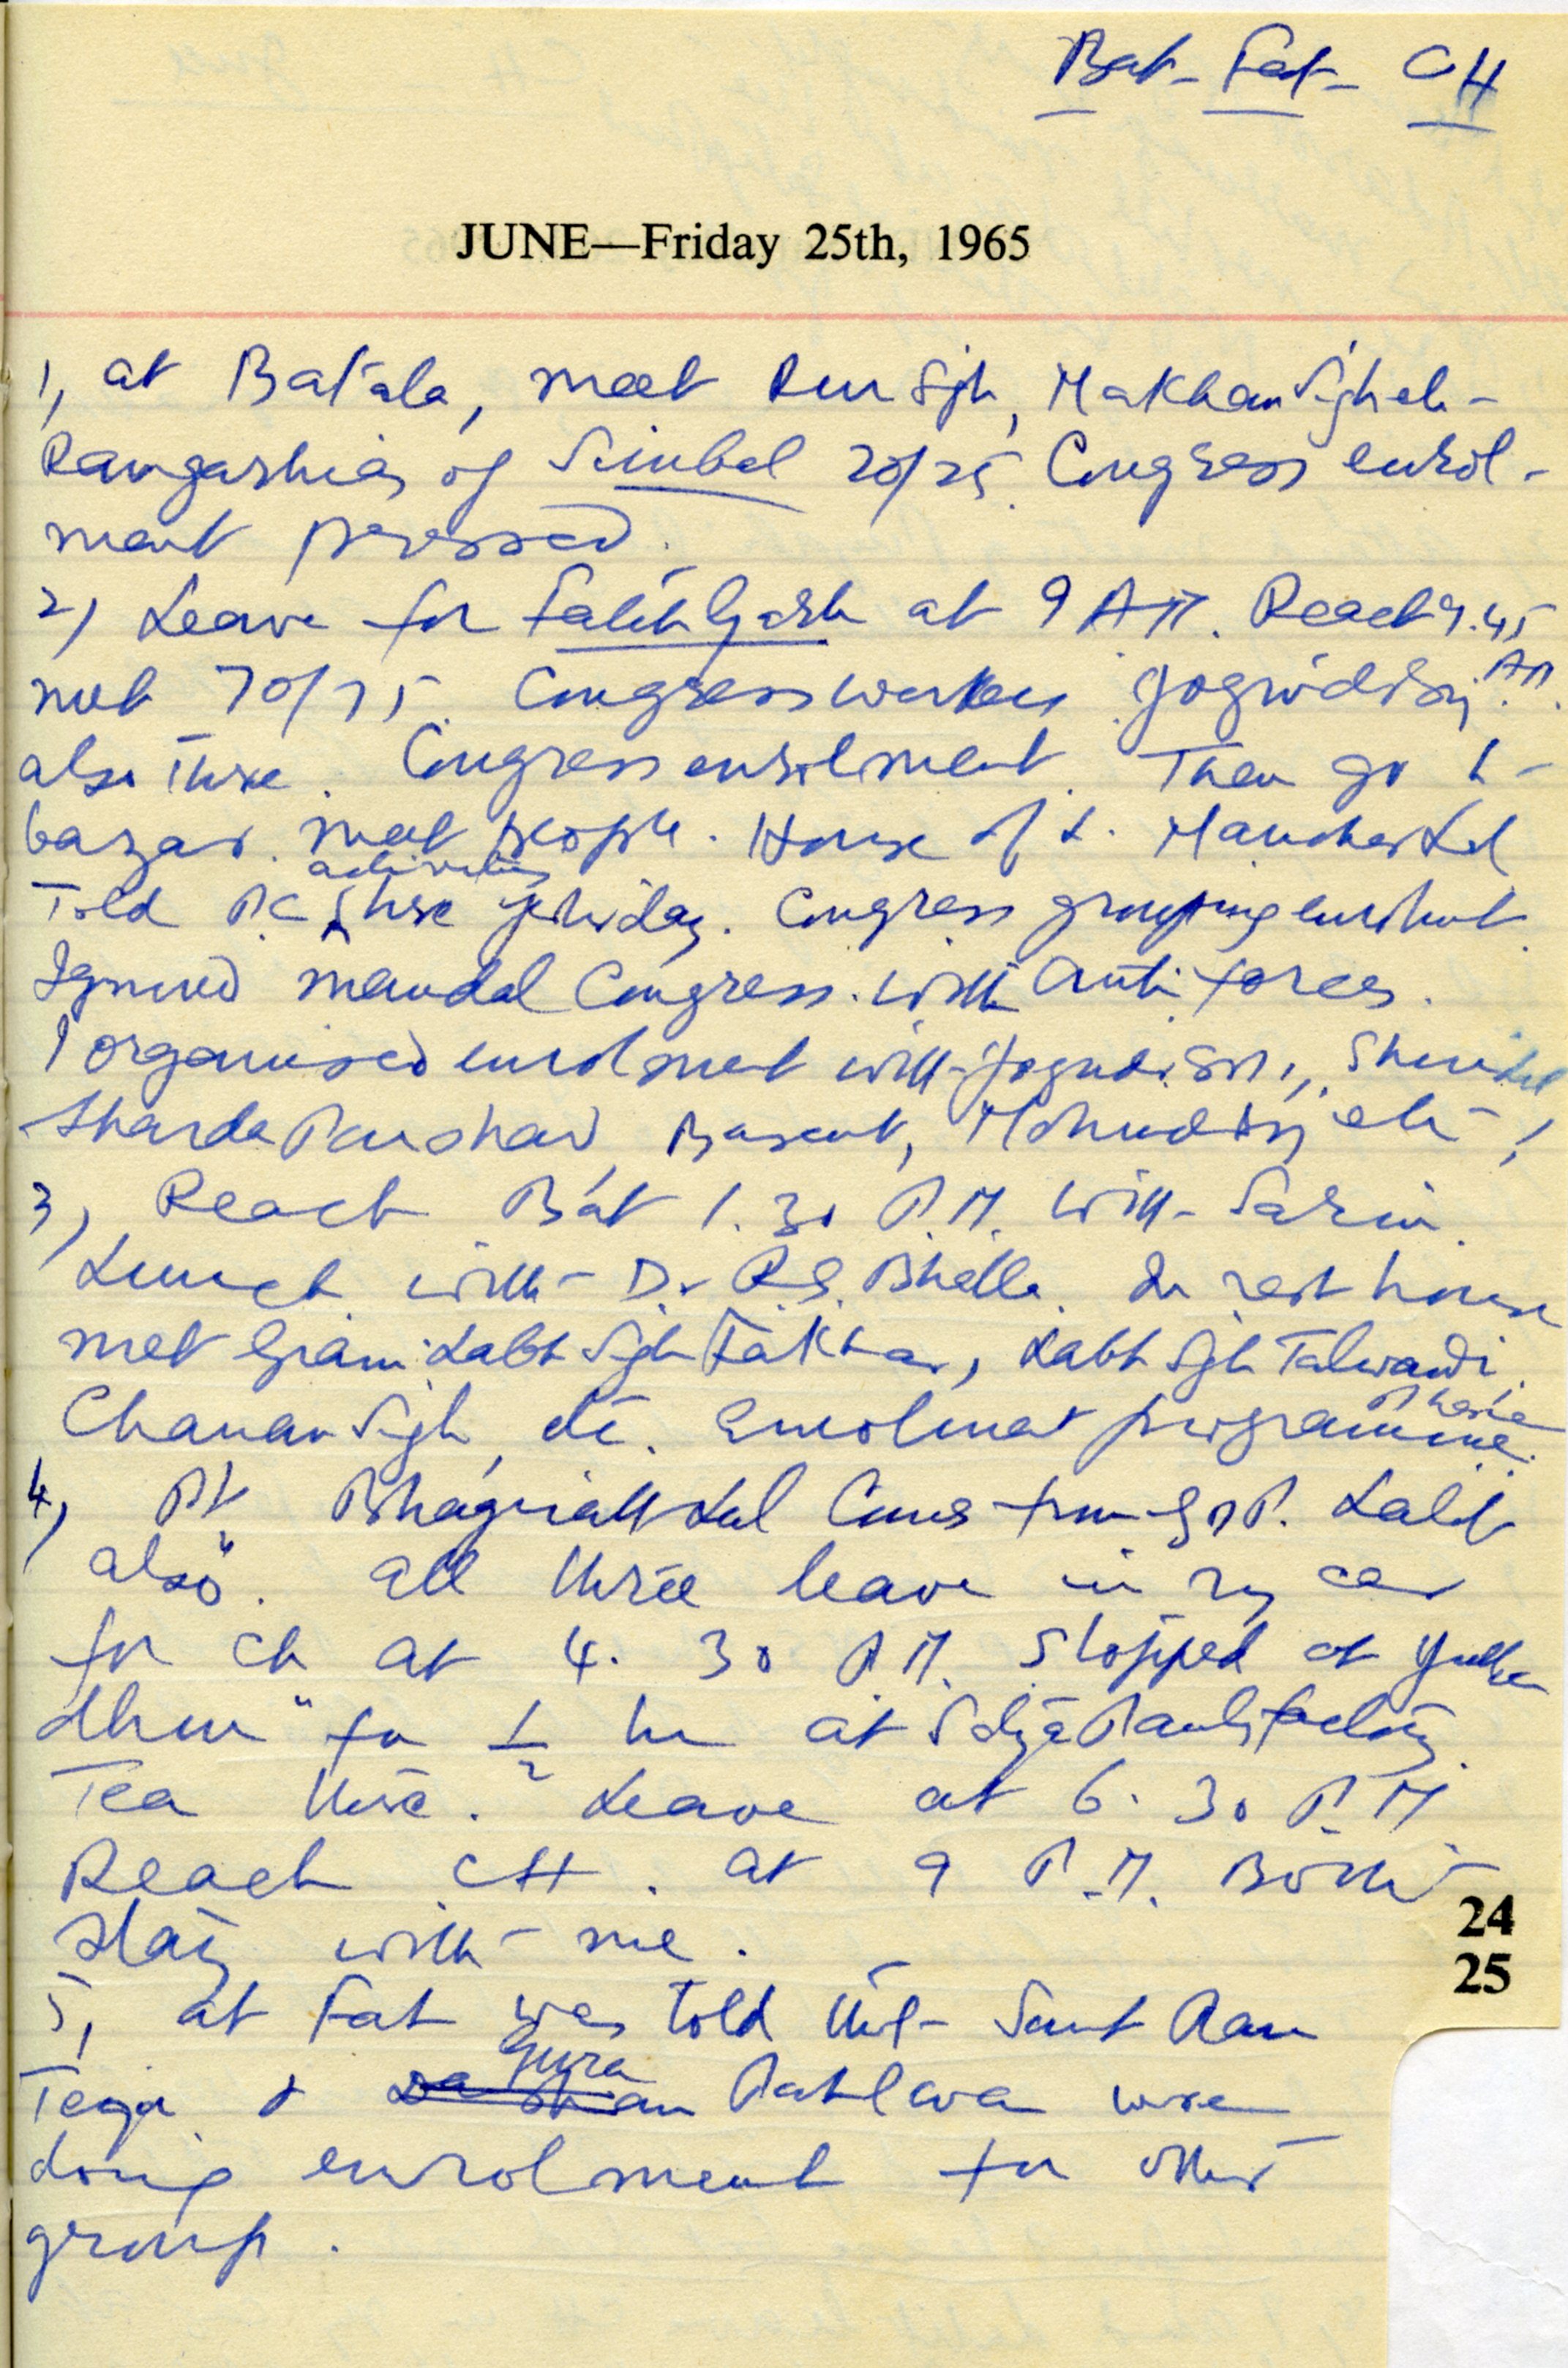 Bat - Fat - CH
JUNE—Friday 25th, 1965
1, at Batala, meet Sgh, Makhan Sgh etc -
Ramgarhias of Simbal 20/25. Congress enrol-
ment pressed.
2) Leave for FatehGarh at 9 AM. Reach 9.45 AM
met 70/75. Congress workers
also there. Congress enrolment. Then go to
bazar. meet people. House of L. Manohar Lal
Told P.C activities here yesterday. Congress grouping enrolment
Ignored mandal Congress. with anti forces.
I organised enrolment with
Sharda Parshad, Basant, etc !
3, Reach Bat 1.30 P.M. with Sarin.
Lunch with Dr R.S. Bhalla. In rest house
met Giani Labh Sgh Fakhar, Labh Sgh Talwandi,
Chanan Sgh, etc. Enrolment programme.
4, Pt Bhagirath Lal Comes from GDP. Lalit
also. All three leave in my car
for Ch at 4.30 P.M. Stopped at Jullun
dhur for 1/2 hr at factory
Tea there. Leave at 6.30 P.M.
Reach CH. at 9 P.M. Both
stay with me.
24
25
5, at Fat was told that Sant Ram
Teja & Gura Pahlwan were
doing enrolment for other
group.